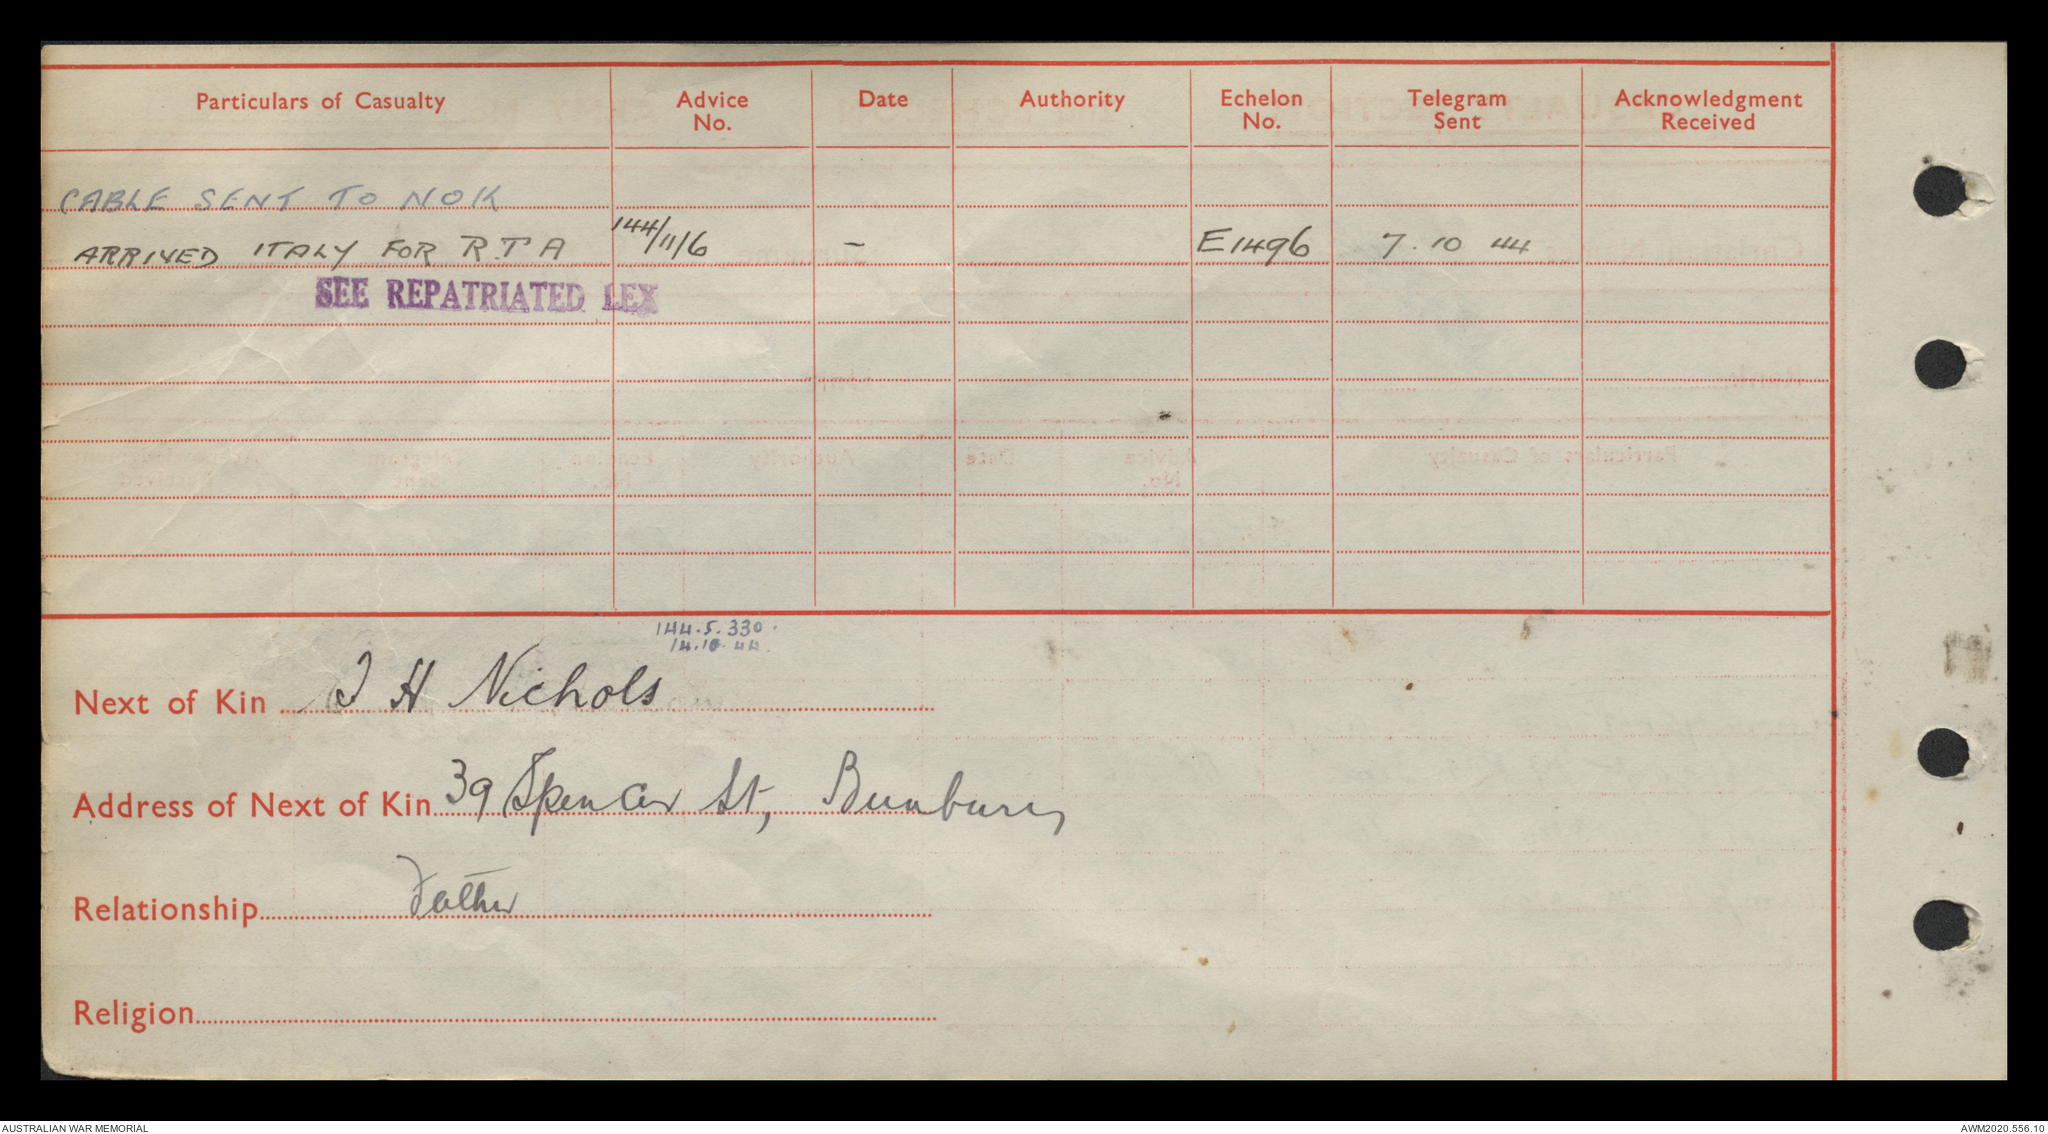 Particulars of Casualty Advice No. Date Authority Echelon No. Telegram Sent Acknowledgment Received
CABLE SENT TO NOK
ARRIVED ITALY FOR R.T A 144/11/6 - E1496 7.10 44
SEE REPATRIATED LEX
144.5.330.
14.10.44.
Next of Kin J H Nichols
Address of Next of Kin 39 Spencer St, Bunbury
Relationship Father
Religion
AUSTRALIAN WAR MEMORIAL AWM2020.556.10